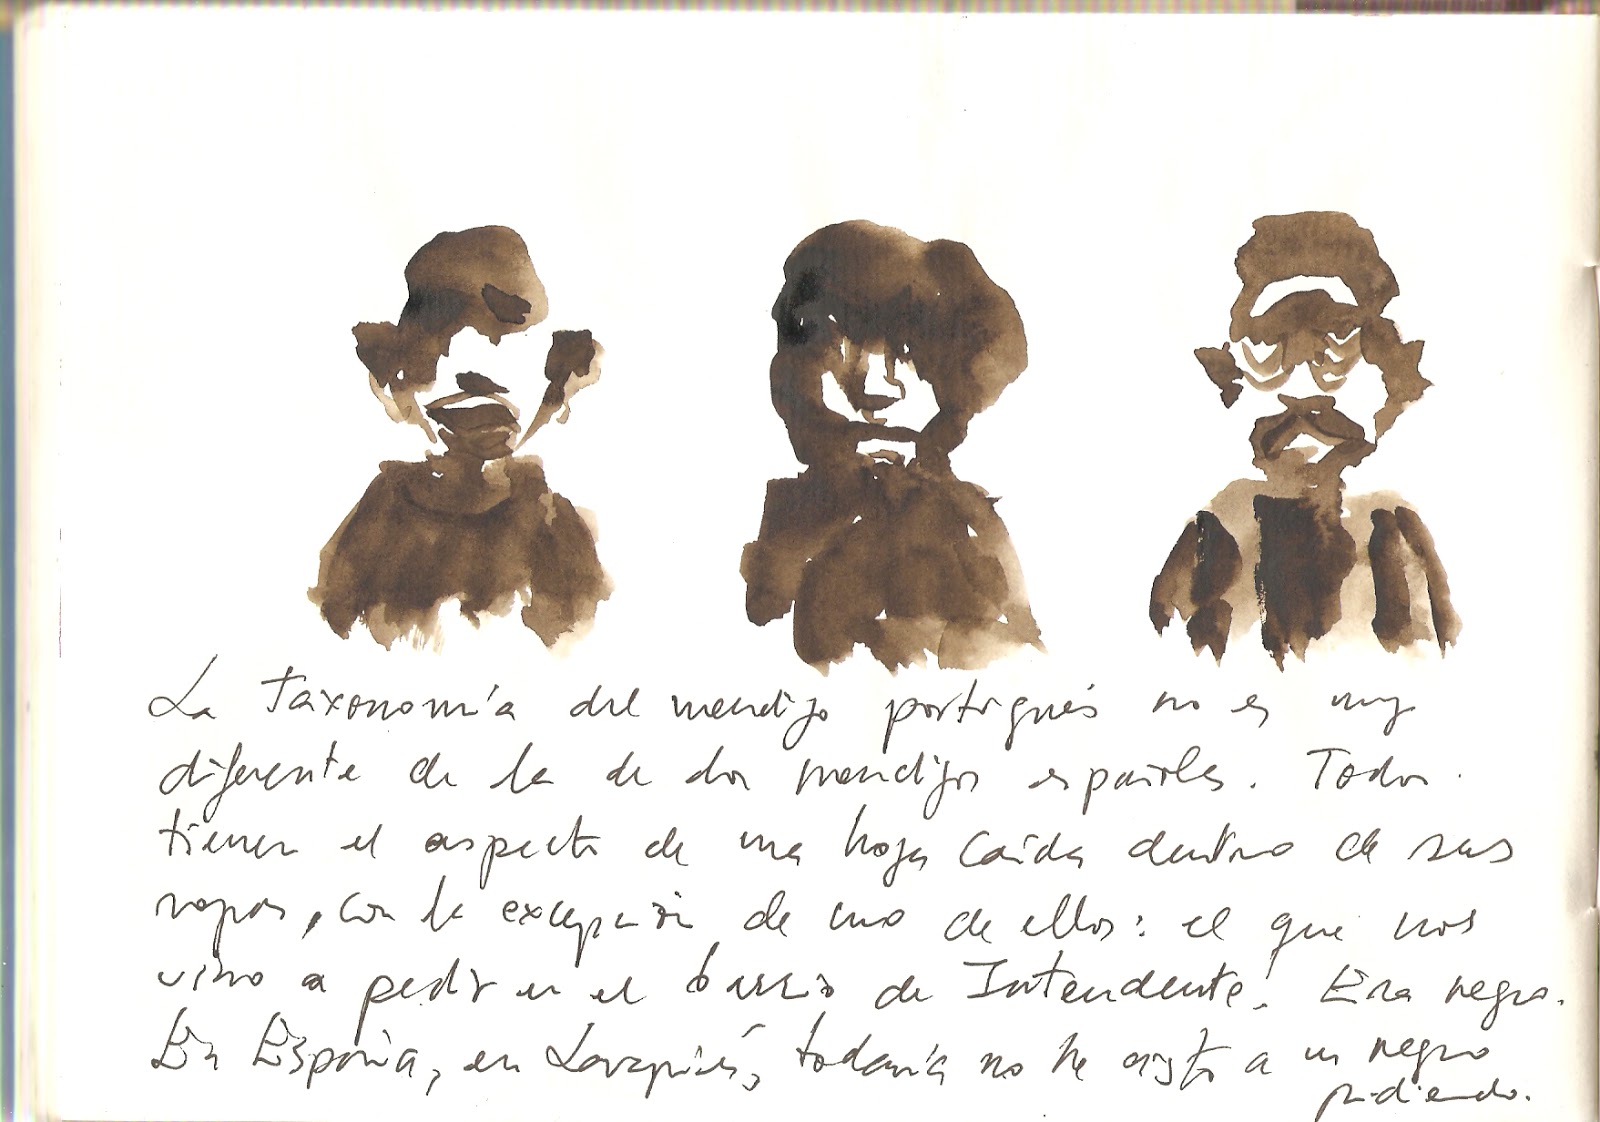 La taxonomía del mendigo portugués no es muy
diferente de la de los mendigos españoles. Todos
tienen el aspecto de una hoja caída dentro de sus
ropas, con la excepción de uno de ellos: el que nos
vino a pedir en el barrio de Intendente. Era negro.
En España, en Lavapiés, todavía no he visto a un negro
pidiendo.